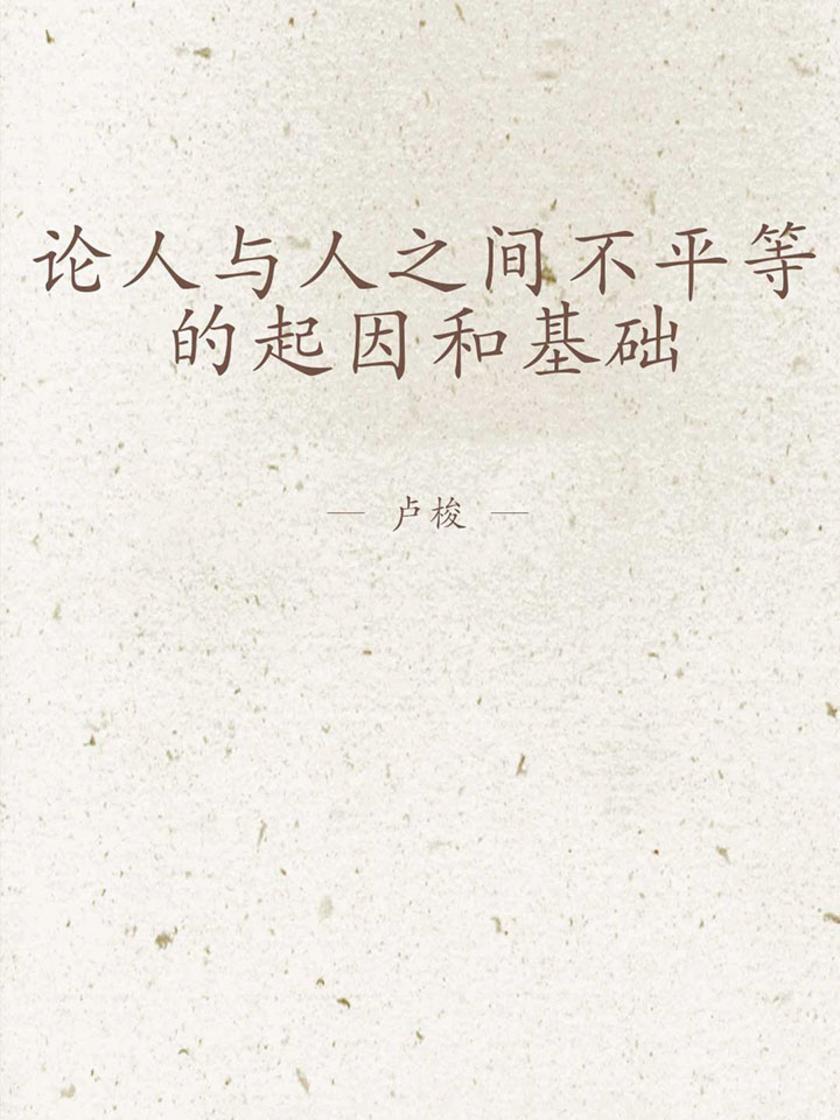 论人与人之间不平等
的起因和基础
— 卢梭 —